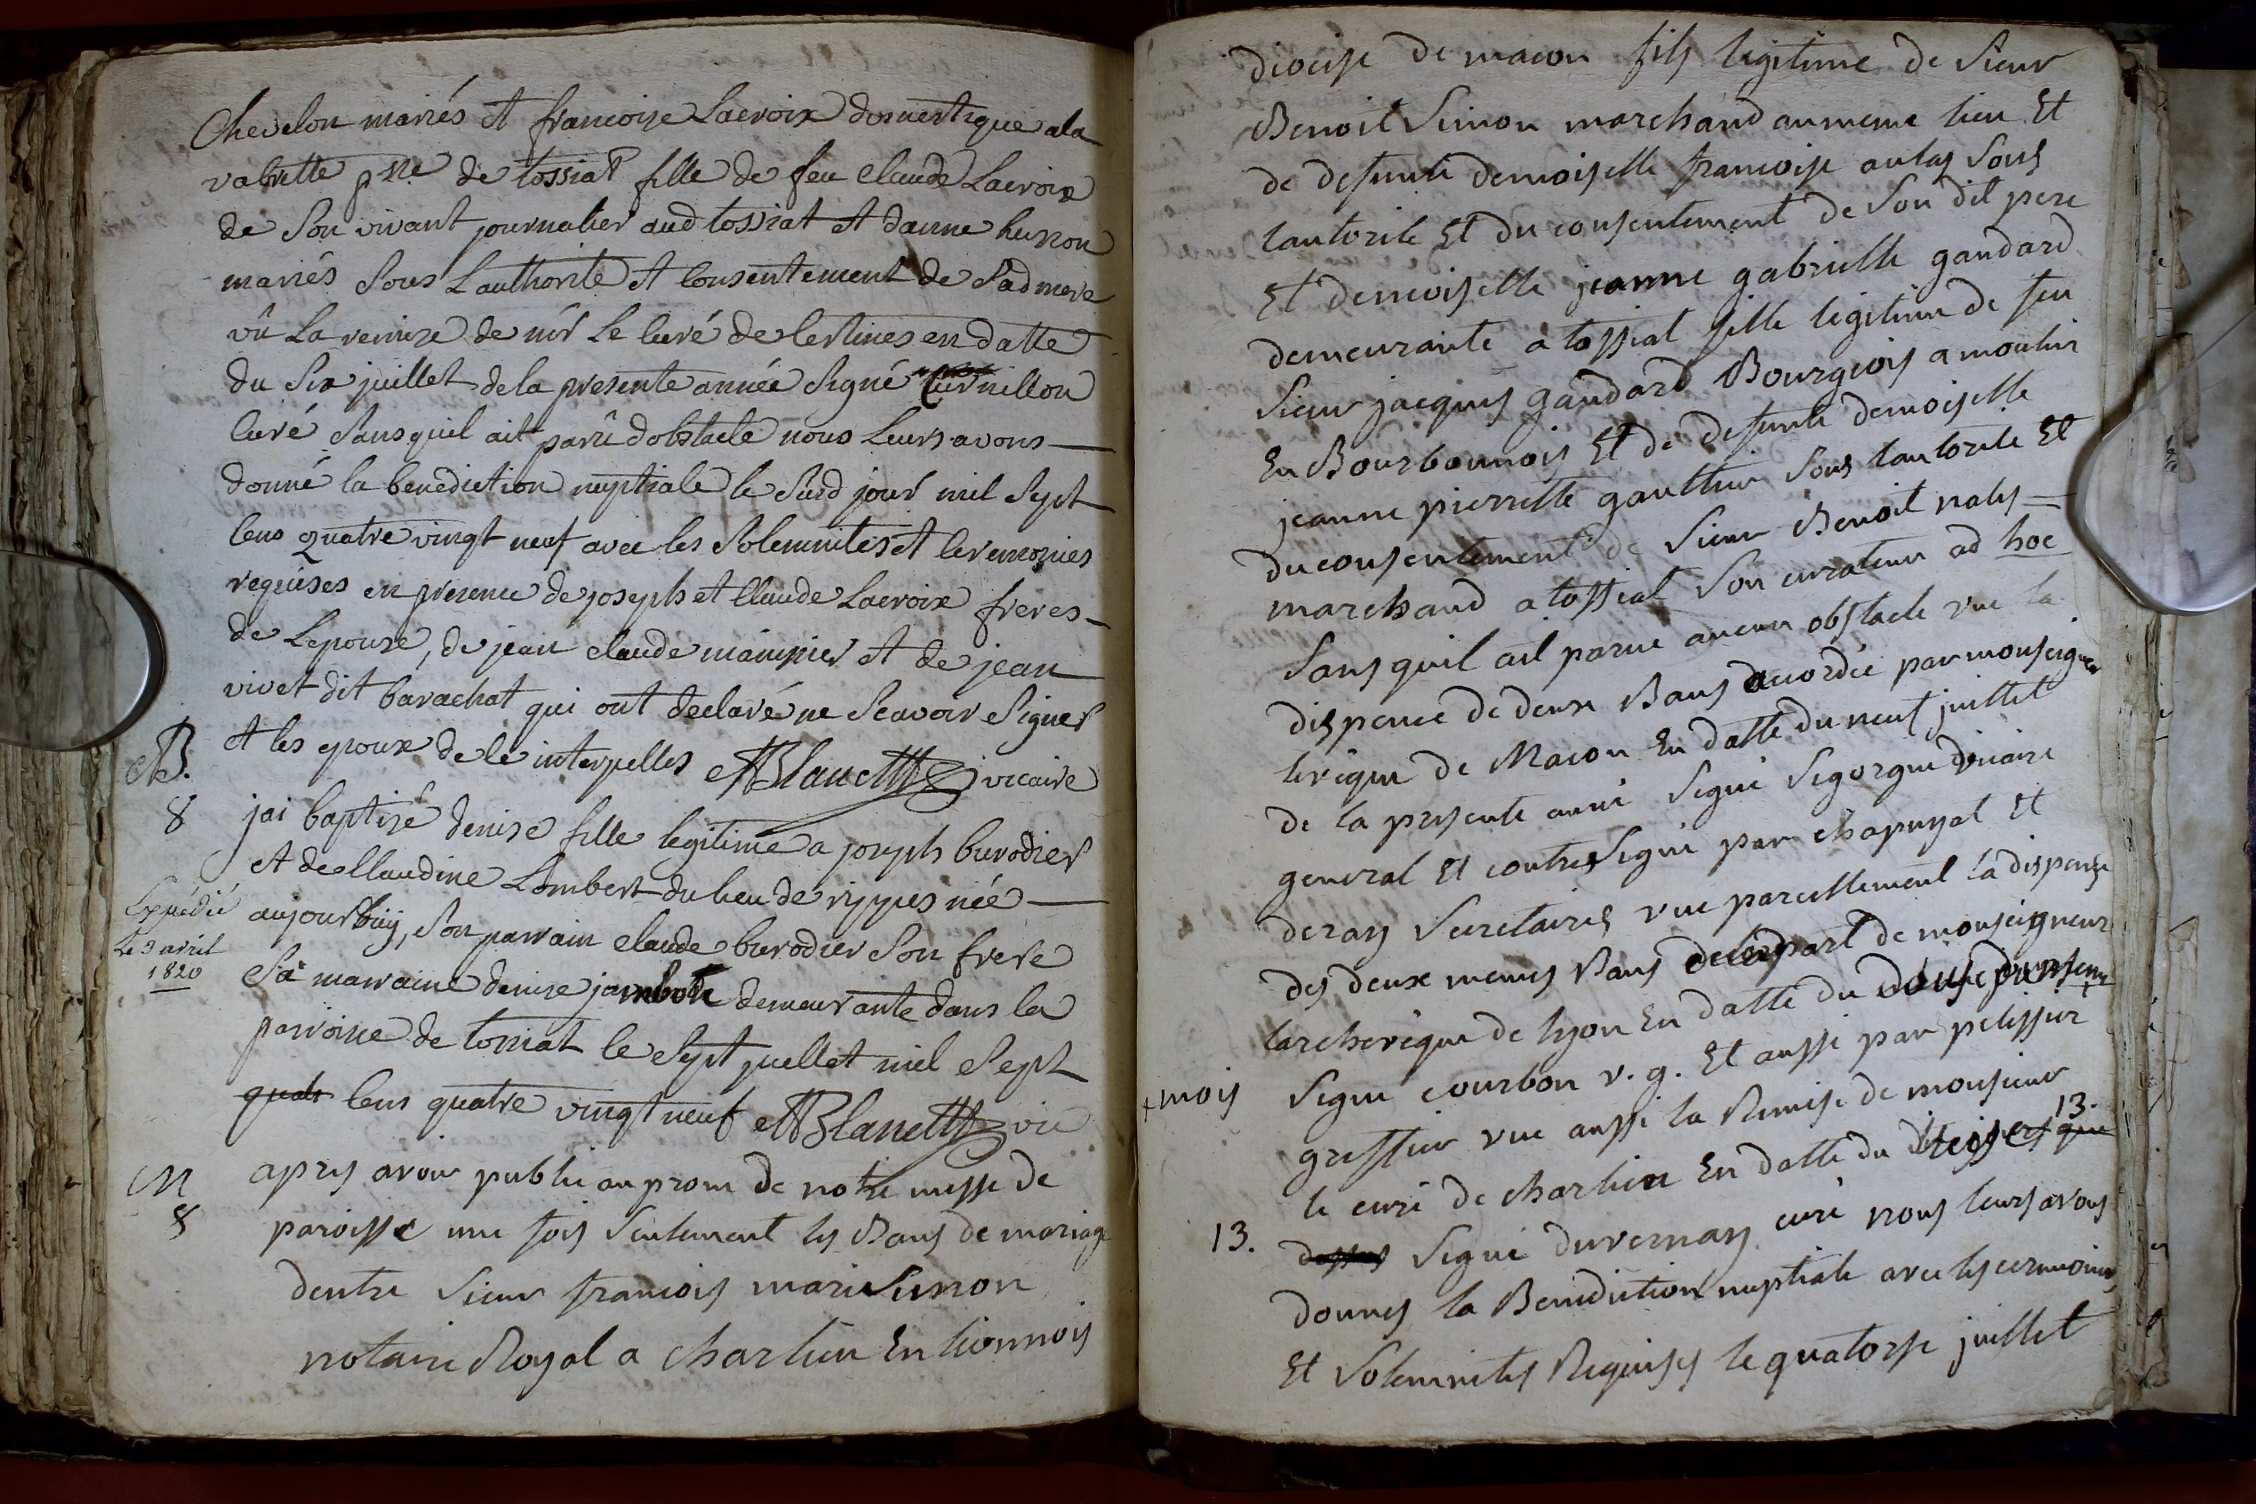 Chevelon mariés et francoise Lacroix domestique a la
valrette psse de tossiat fille de feu claude Lacroix
de Son vivant journalier aud tossiat et danne hunon
mariés Sous Lauthorité et Consentement de Sad mere
vû La remise de mr Le Curé de Certines en datte
du Six juillet de la presente année Signé Curnillon
Curé Sans quil ait parû dobstacle nous Leurs avons
donné la benediction nuptiale le Susd jour mil Sept
Cens quatre vingt neuf avec les Solemnités et Ceremonies
requises en presence de joseph et Claude Lacroix freres
de Lepouse, de jean claude et de jean
vivet dit barachat qui ont declaré ne Scavoir Signer
et les epoux de le interpelles Blanc vicaire
B.
8
jai baptisé denise fille legitime a joseph burodier
et de Claudine Lombert du lieu de rippes née
Expédié
Le 9 avril
1820
aujourdhuy, Son parrain claude burodier Son frere
Sa marraine denise demeurante dans la
parroisse de tossiat le Sept juillet mil Sept
quat Cens quatre vingt neuf Blanc vic
M
8
apres avoir publié au prone de notre messe de
paroisse une fois Seulement les Bans de mariage
dentre Sieur francois marie Simon
notaire Royal a charlieu En lionnois
diocese de macon fils legitime de Sieur
Benoit Simon marchand au meme lieu Et
de defunte demoiselle francoise aulas Sous
lautorité Et du consentement de Son dit pere
Et demoiselle jeanne gabrielle gandard
demeurante a tossiat fille legitime de feu
Sieur jacques gandard Bourgeois a moulin
En Bourbonnois Et de defunte demoiselle
jeanne pierrette gauthier Sous lautorité Et
du consentement de Sieur Benoit
marchand a tossiat Son curateur ad hoc
Sans quil ait parue aucun obstacle vue la
dispence de deux Bans accordée par monseigneur
leveque de Macon En datte du neuf juillet
de la presente année Signé Segorgne vicaire
general Et contreSigné par chapuysat Et
deray Secretaires vue pareillement la dispense
des deux memes Bans de la part de monseigneur
larcheveque de lyon En datte du douse du present
+ mois
Signé courbon v. g. Et aussi par pelissier
greffier vue aussi la Remise de monsieur
le curé de charlieu En datte du 13.
13.
Signé duvernay curé nous leurs avons
donnés la Benediction nuptiale avec les ceremonies
Et Solemnités Requises le quatorse juillet